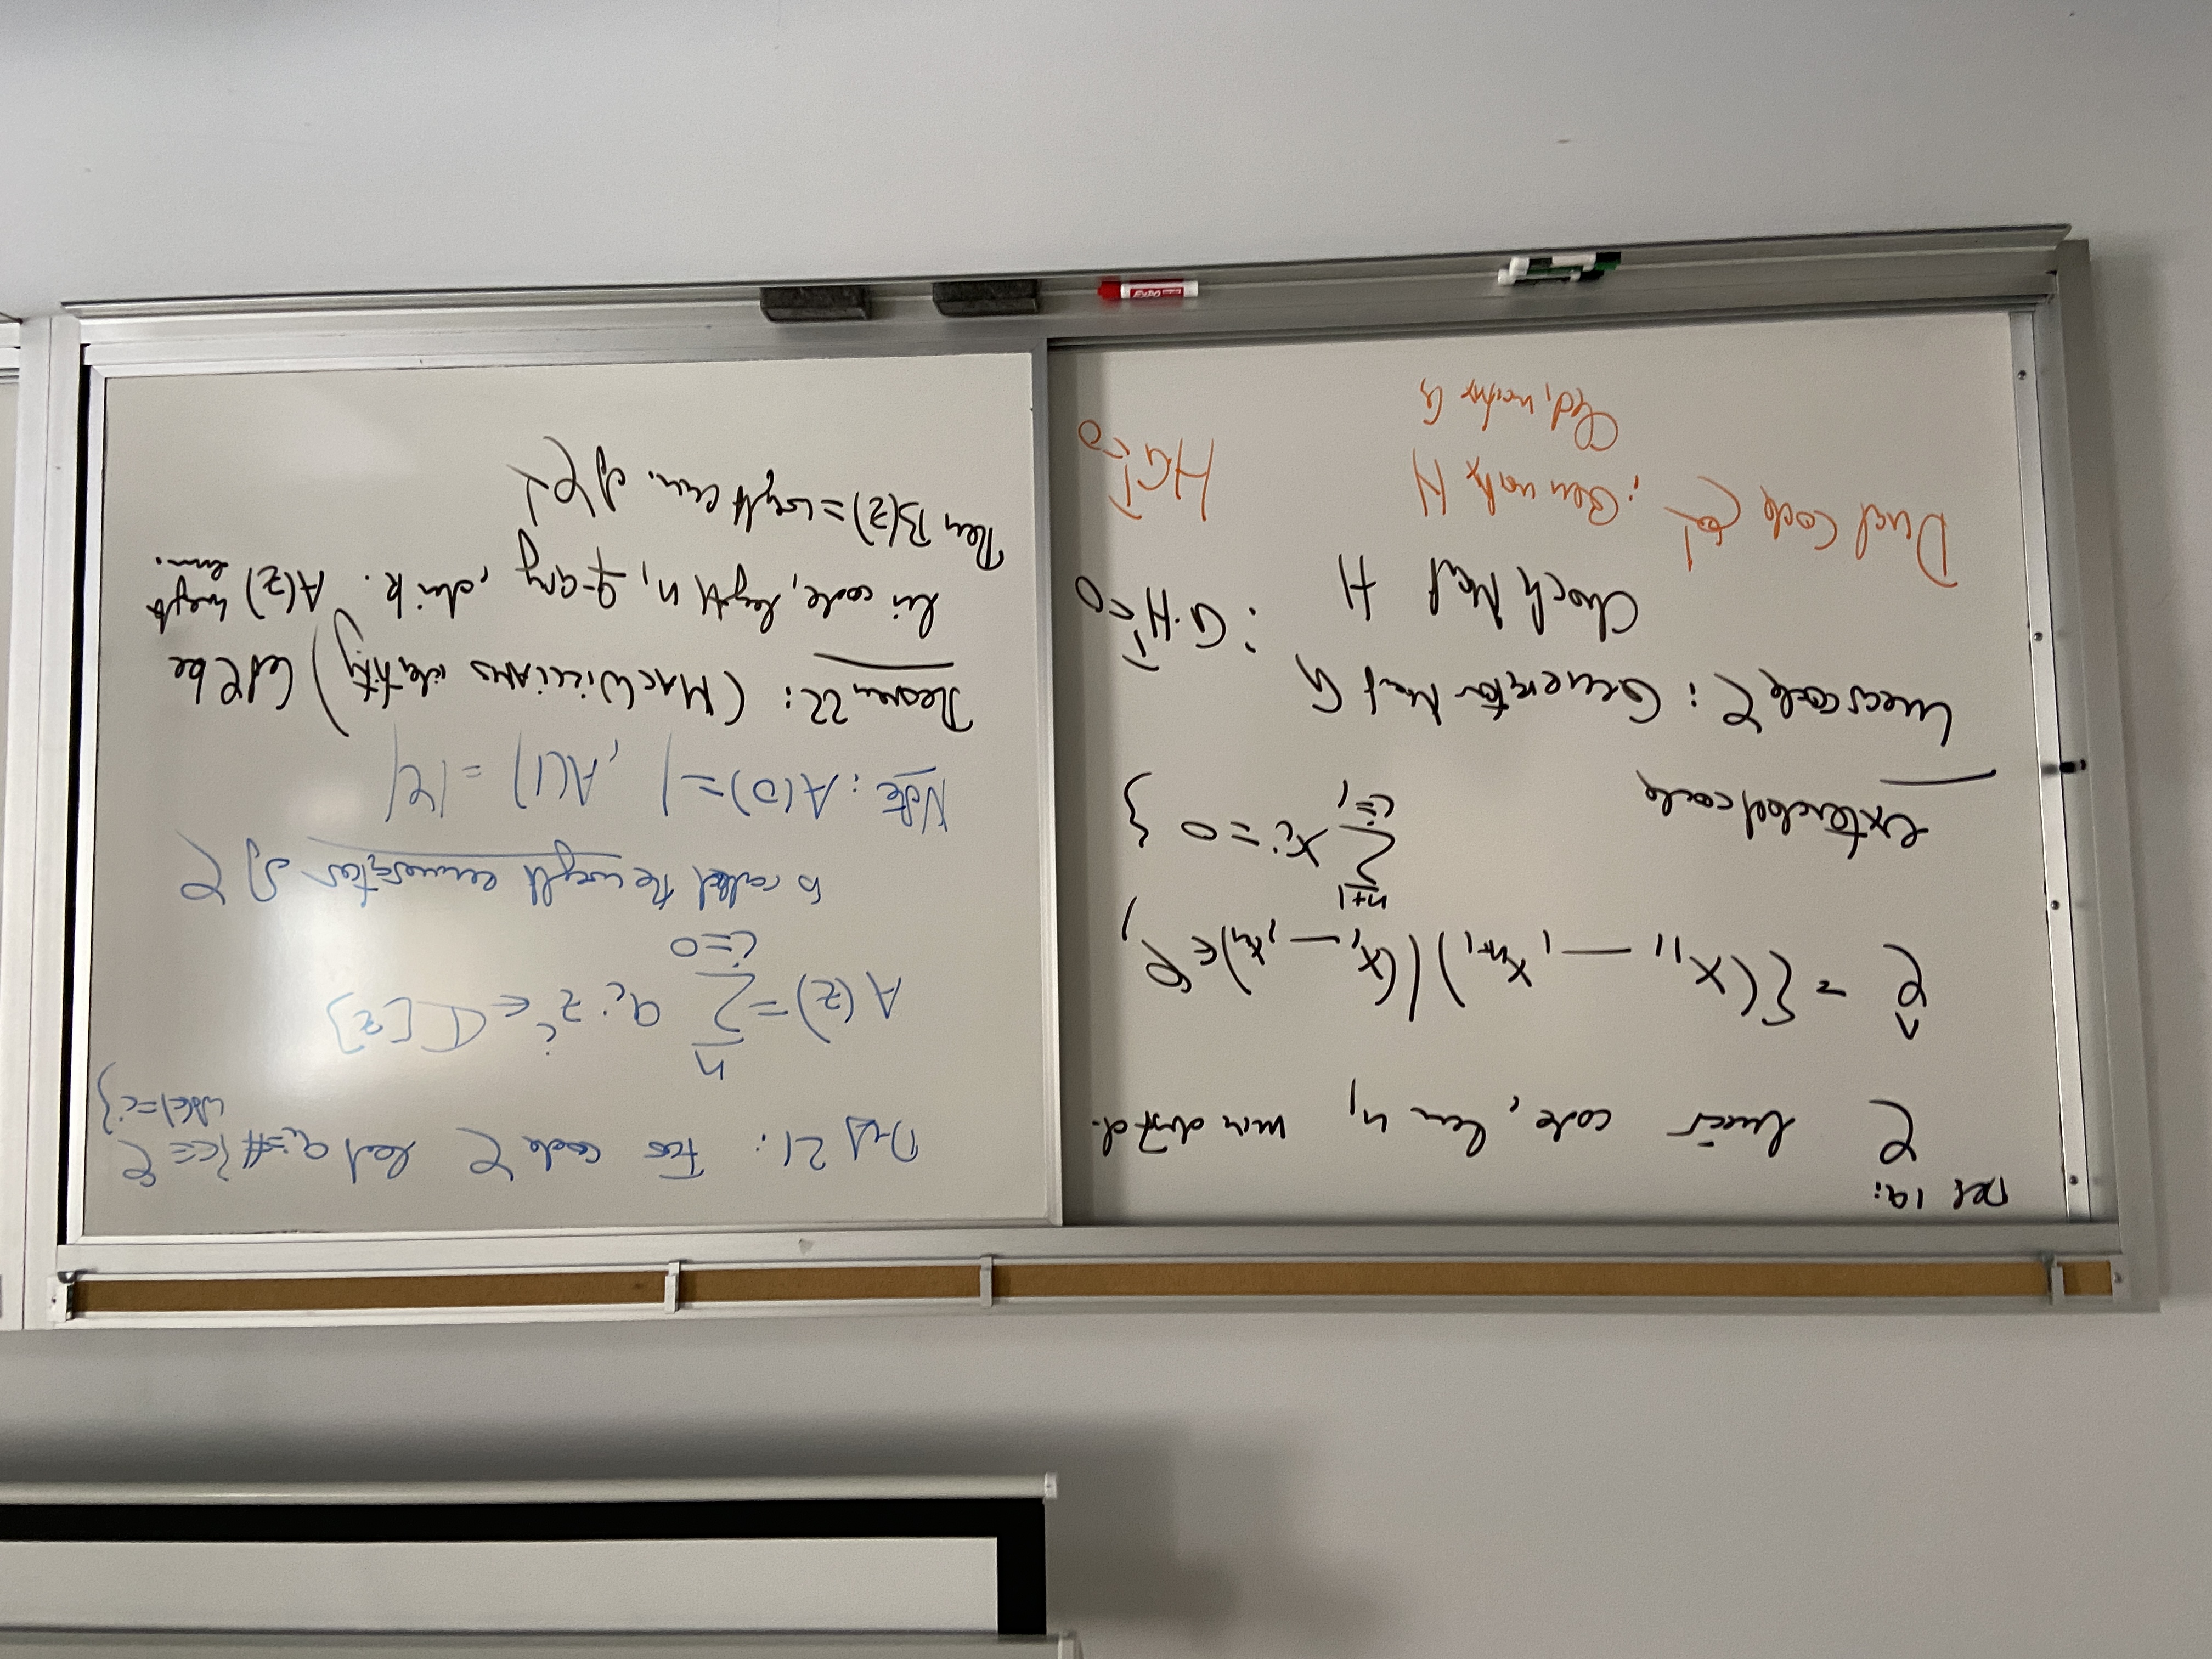 Def 19:
C linear code, len n, min dist d.
Ĉ = {(x₁, —, xₙ₊₁) | (x₁, —, xₙ) ∈ C,
extended code ∑ᵢ₌₁ⁿ⁺¹ xᵢ = 0 }
Linear code C : Generator Mat G
Check Mat H : G·Hᵀ = 0
Dual code C^⊥ : Gen matrix H HGᵀ = 0
Check matrix G
Def 21: For code C let aᵢ = #{c ∈ C
wt(c) = i}
A(z) = ∑ᵢ₌₀ⁿ aᵢ zⁱ ∈ ℂ[z]
is called the weight enumerator of C
Note: A(0) = 1, A(1) = |C|
Theorem 22: (MacWilliams identity) Let C be
lin code, length n, q-ary, dim k. A(z) weight
enum.
Then B(z) = weight enum. of C^⊥
EXPO